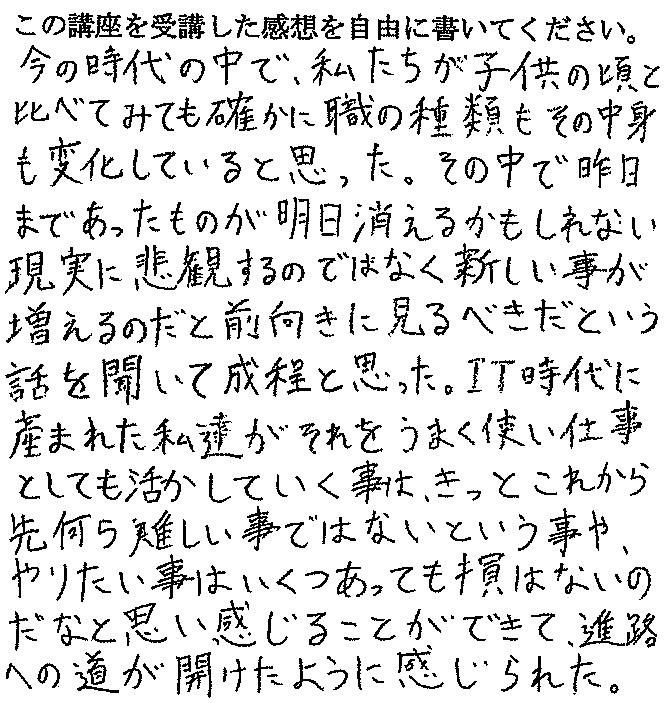 この講座を受講した感想を自由に書いてください。
今の時代の中で、私たちが子供の頃と
比べてみても確かに職の種類もその中身
も変化していると思った。その中で昨日
まであったものが明日消えるかもしれない
現実に悲観するのではなく新しい事が
増えるのだと前向きに見るべきだという
話を聞いて成程と思った。IT時代に
産まれた私達がそれをうまく使い仕事
としても活かしていく事は、きっとこれから
先何ら難しい事ではないという事や、
やりたい事はいくつあっても損はないの
だなと思い感じることができて、進路
への道が開けたように感じられた。